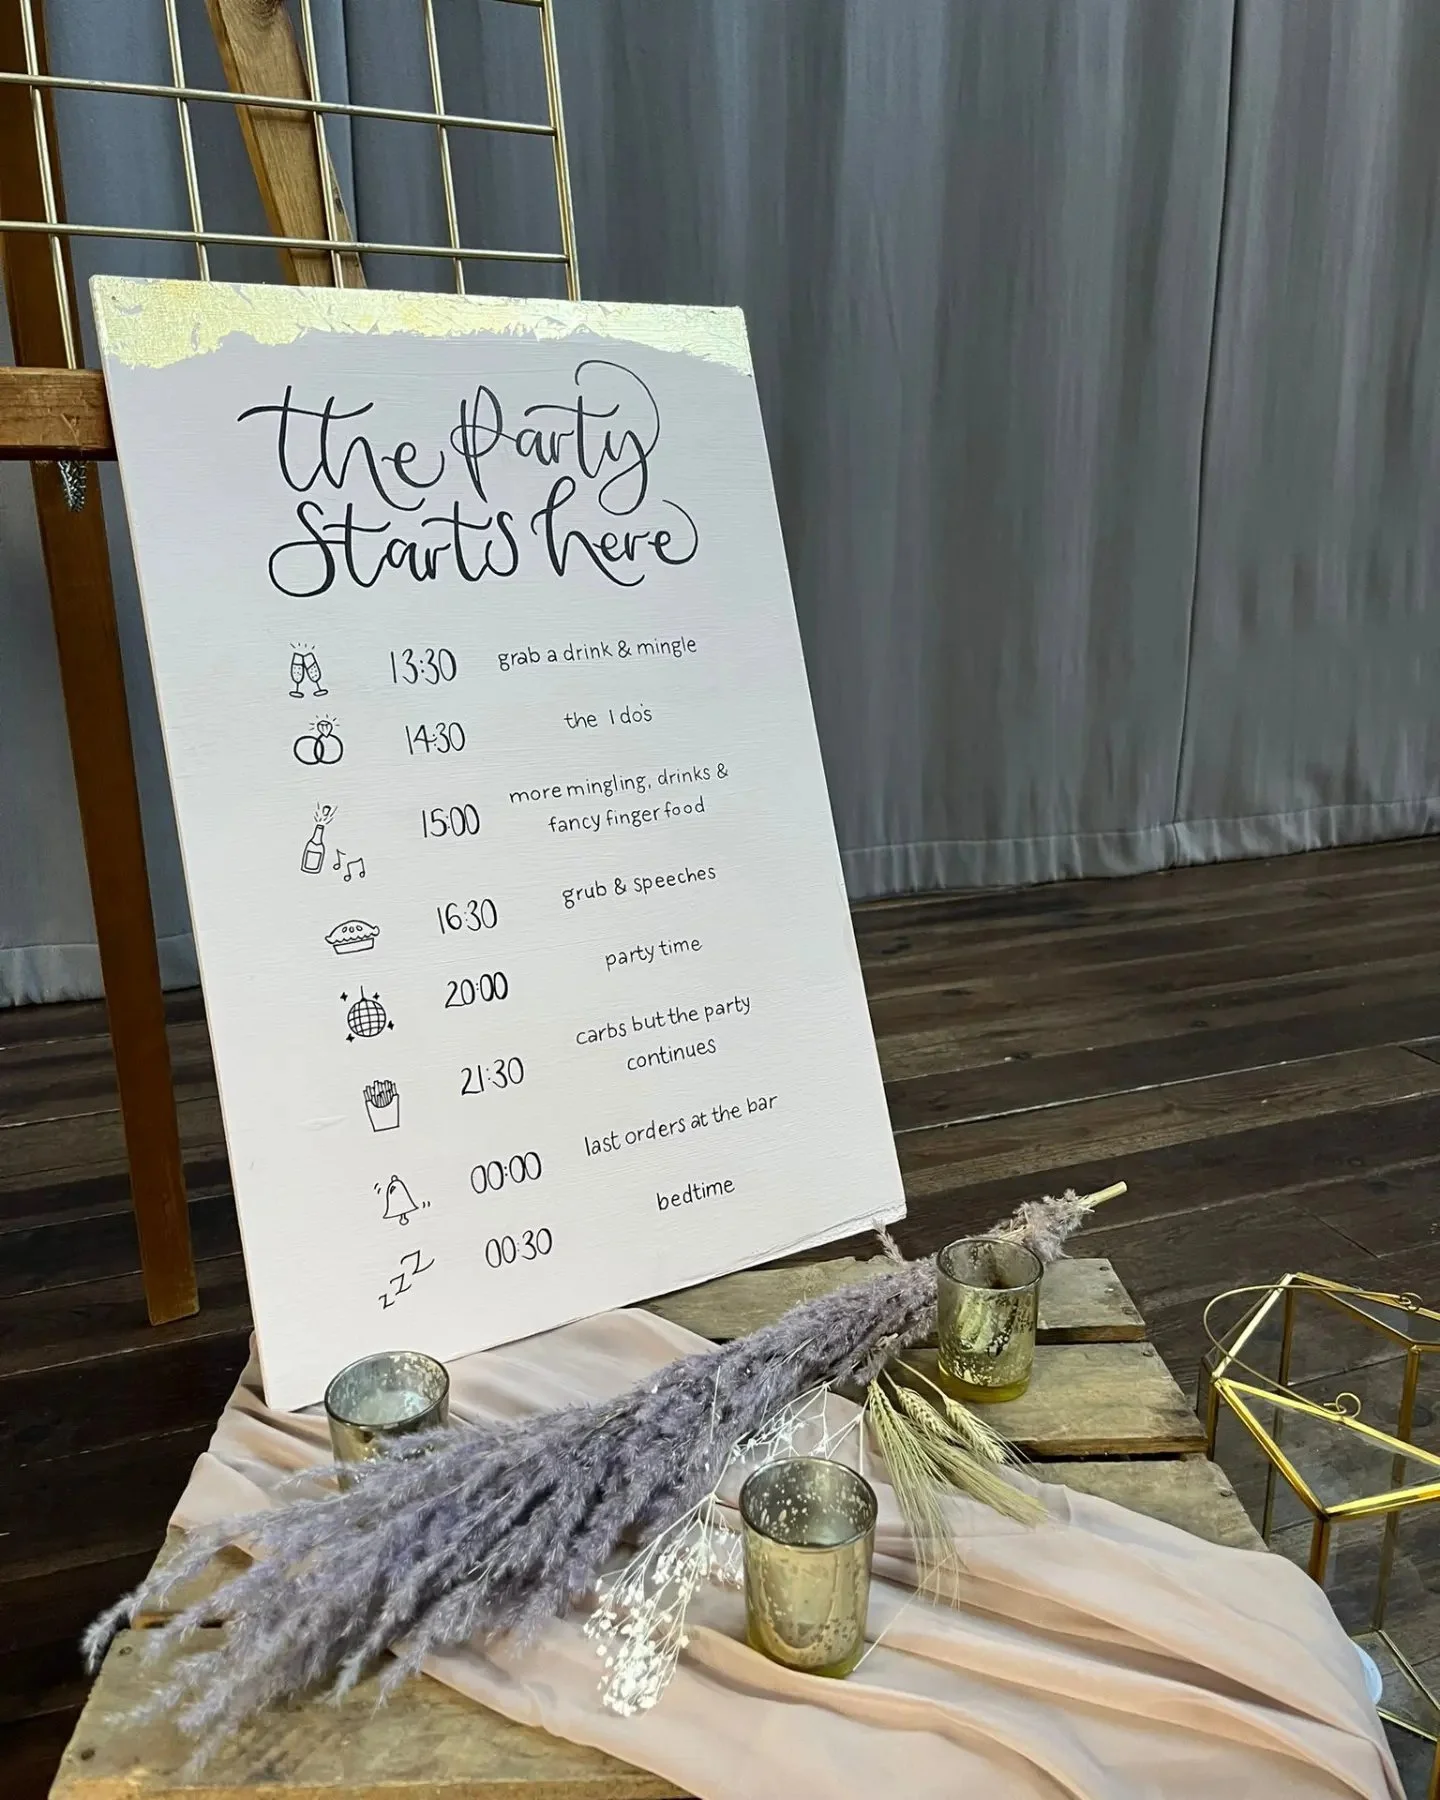 the Party
Starts here
13:30 grab a drink & mingle
14:30 the I do's
15:00 more mingling, drinks &
fancy finger food
16:30 grub & speeches
20:00 party time
21:30 carbs but the party
continues
00:00 last orders at the bar
00:30 bedtime
zzz